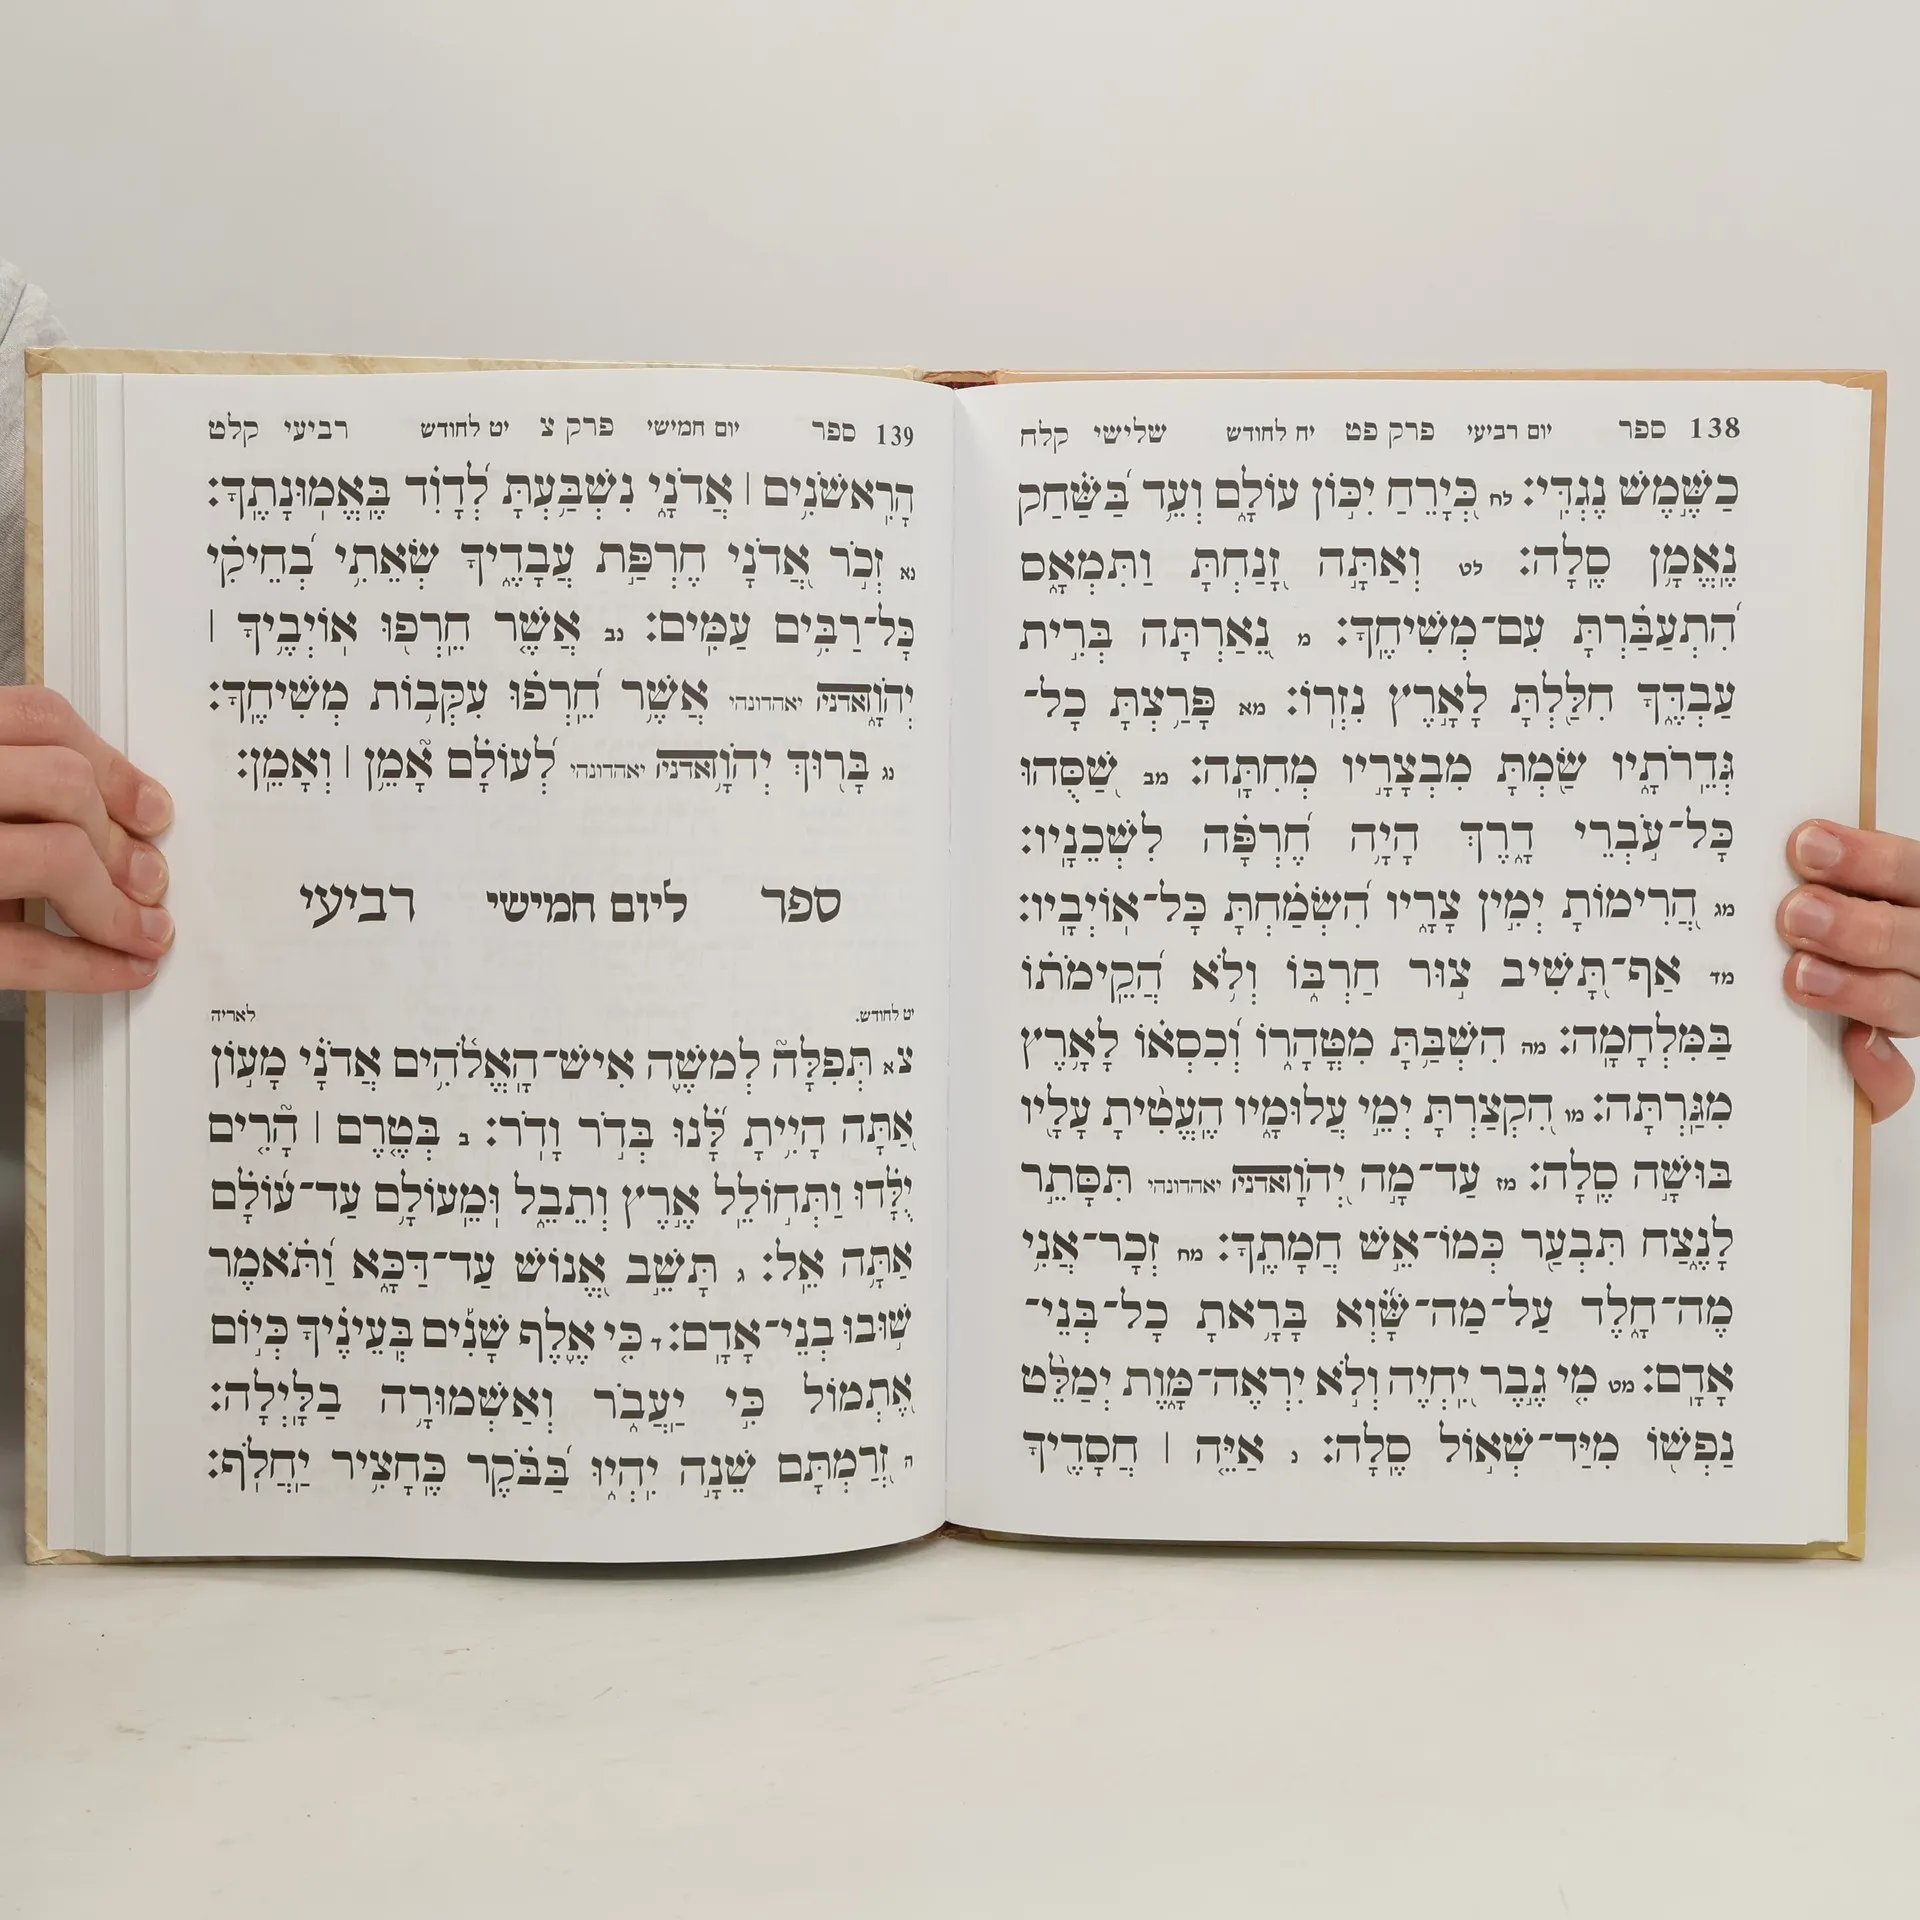 138 ספר יום רביעי פרק פט יח לחודש שלישי קלח
כַּשֶּׁמֶשׁ נֶגְדִּי׃ לח כְּיָרֵחַ יִכּוֹן עוֹלָם וְעֵד בַּשַּׁחַק
נֶאֱמָן סֶלָה׃ לט וְאַתָּה זָנַחְתָּ וַתִּמְאָס
הִתְעַבַּרְתָּ עִם־מְשִׁיחֶךָ׃ מ נֵאַרְתָּה בְּרִית
עַבְדֶּךָ חִלַּלְתָּ לָאָרֶץ נִזְרוֹ׃ מא פָּרַצְתָּ כָל־
גְּדֵרֹתָיו שַׂמְתָּ מִבְצָרָיו מְחִתָּה׃ מב שַׁסֻּהוּ
כָּל־עֹבְרֵי דָרֶךְ הָיָה חֶרְפָּה לִשְׁכֵנָיו׃
מג הֲרִימוֹתָ יְמִין צָרָיו הִשְׂמַחְתָּ כָּל־אוֹיְבָיו׃
מד אַף־תָּשִׁיב צוּר חַרְבּוֹ וְלֹא הֲקֵימֹתוֹ
בַּמִּלְחָמָה׃ מה הִשְׁבַּתָּ מִטְּהָרוֹ וְכִסְאוֹ לָאָרֶץ
מִגַּרְתָּה׃ מו הִקְצַרְתָּ יְמֵי עֲלוּמָיו הֶעֱטִיתָ עָלָיו
בּוּשָׁה סֶלָה׃ מז עַד־מָה יְהוָה יאהדונהי תִּסָּתֵר
לָנֶצַח תִּבְעַר כְּמוֹ־אֵשׁ חֲמָתֶךָ׃ מח זְכָר־אֲנִי
מֶה־חָלֶד עַל־מַה־שָּׁוְא בָּרָאתָ כָל־בְּנֵי־
אָדָם׃ מט מִי גֶבֶר יִחְיֶה וְלֹא יִרְאֶה־מָּוֶת יְמַלֵּט
נַפְשׁוֹ מִיַּד־שְׁאוֹל סֶלָה׃ נ אַיֵּה ׀ חֲסָדֶיךָ
139 ספר יום חמישי פרק צ יט לחודש רביעי קלט
הָרִאשֹׁנִים ׀ אֲדֹנָי נִשְׁבַּעְתָּ לְדָוִד בֶּאֱמוּנָתֶךָ׃
נא זְכֹר אֲדֹנָי חֶרְפַּת עֲבָדֶיךָ שְׂאֵתִי בְחֵיקִי
כָּל־רַבִּים עַמִּים׃ נב אֲשֶׁר חֵרְפוּ אוֹיְבֶיךָ ׀
יְהוָה יאהדונהי אֲשֶׁר חֵרְפוּ עִקְּבוֹת מְשִׁיחֶךָ׃
נג בָּרוּךְ יְהוָה יאהדונהי לְעוֹלָם אָמֵן ׀ וְאָמֵן׃
ספר ליום חמישי רביעי
יט לחודש. לאריה
צ א תְּפִלָּה לְמֹשֶׁה אִישׁ־הָאֱלֹהִים אֲדֹנָי מָעוֹן
אַתָּה הָיִיתָ לָּנוּ בְּדֹר וָדֹר׃ ב בְּטֶרֶם ׀ הָרִים
יֻלָּדוּ וַתְּחוֹלֵל אֶרֶץ וְתֵבֵל וּמֵעוֹלָם עַד־עוֹלָם
אַתָּה אֵל׃ ג תָּשֵׁב אֱנוֹשׁ עַד־דַּכָּא וַתֹּאמֶר
שׁוּבוּ בְנֵי־אָדָם׃ ד כִּי אֶלֶף שָׁנִים בְּעֵינֶיךָ כְּיוֹם
אֶתְמוֹל כִּי יַעֲבֹר וְאַשְׁמוּרָה בַלָּיְלָה׃
ה זְרַמְתָּם שֵׁנָה יִהְיוּ בַּבֹּקֶר כֶּחָצִיר יַחֲלֹף׃